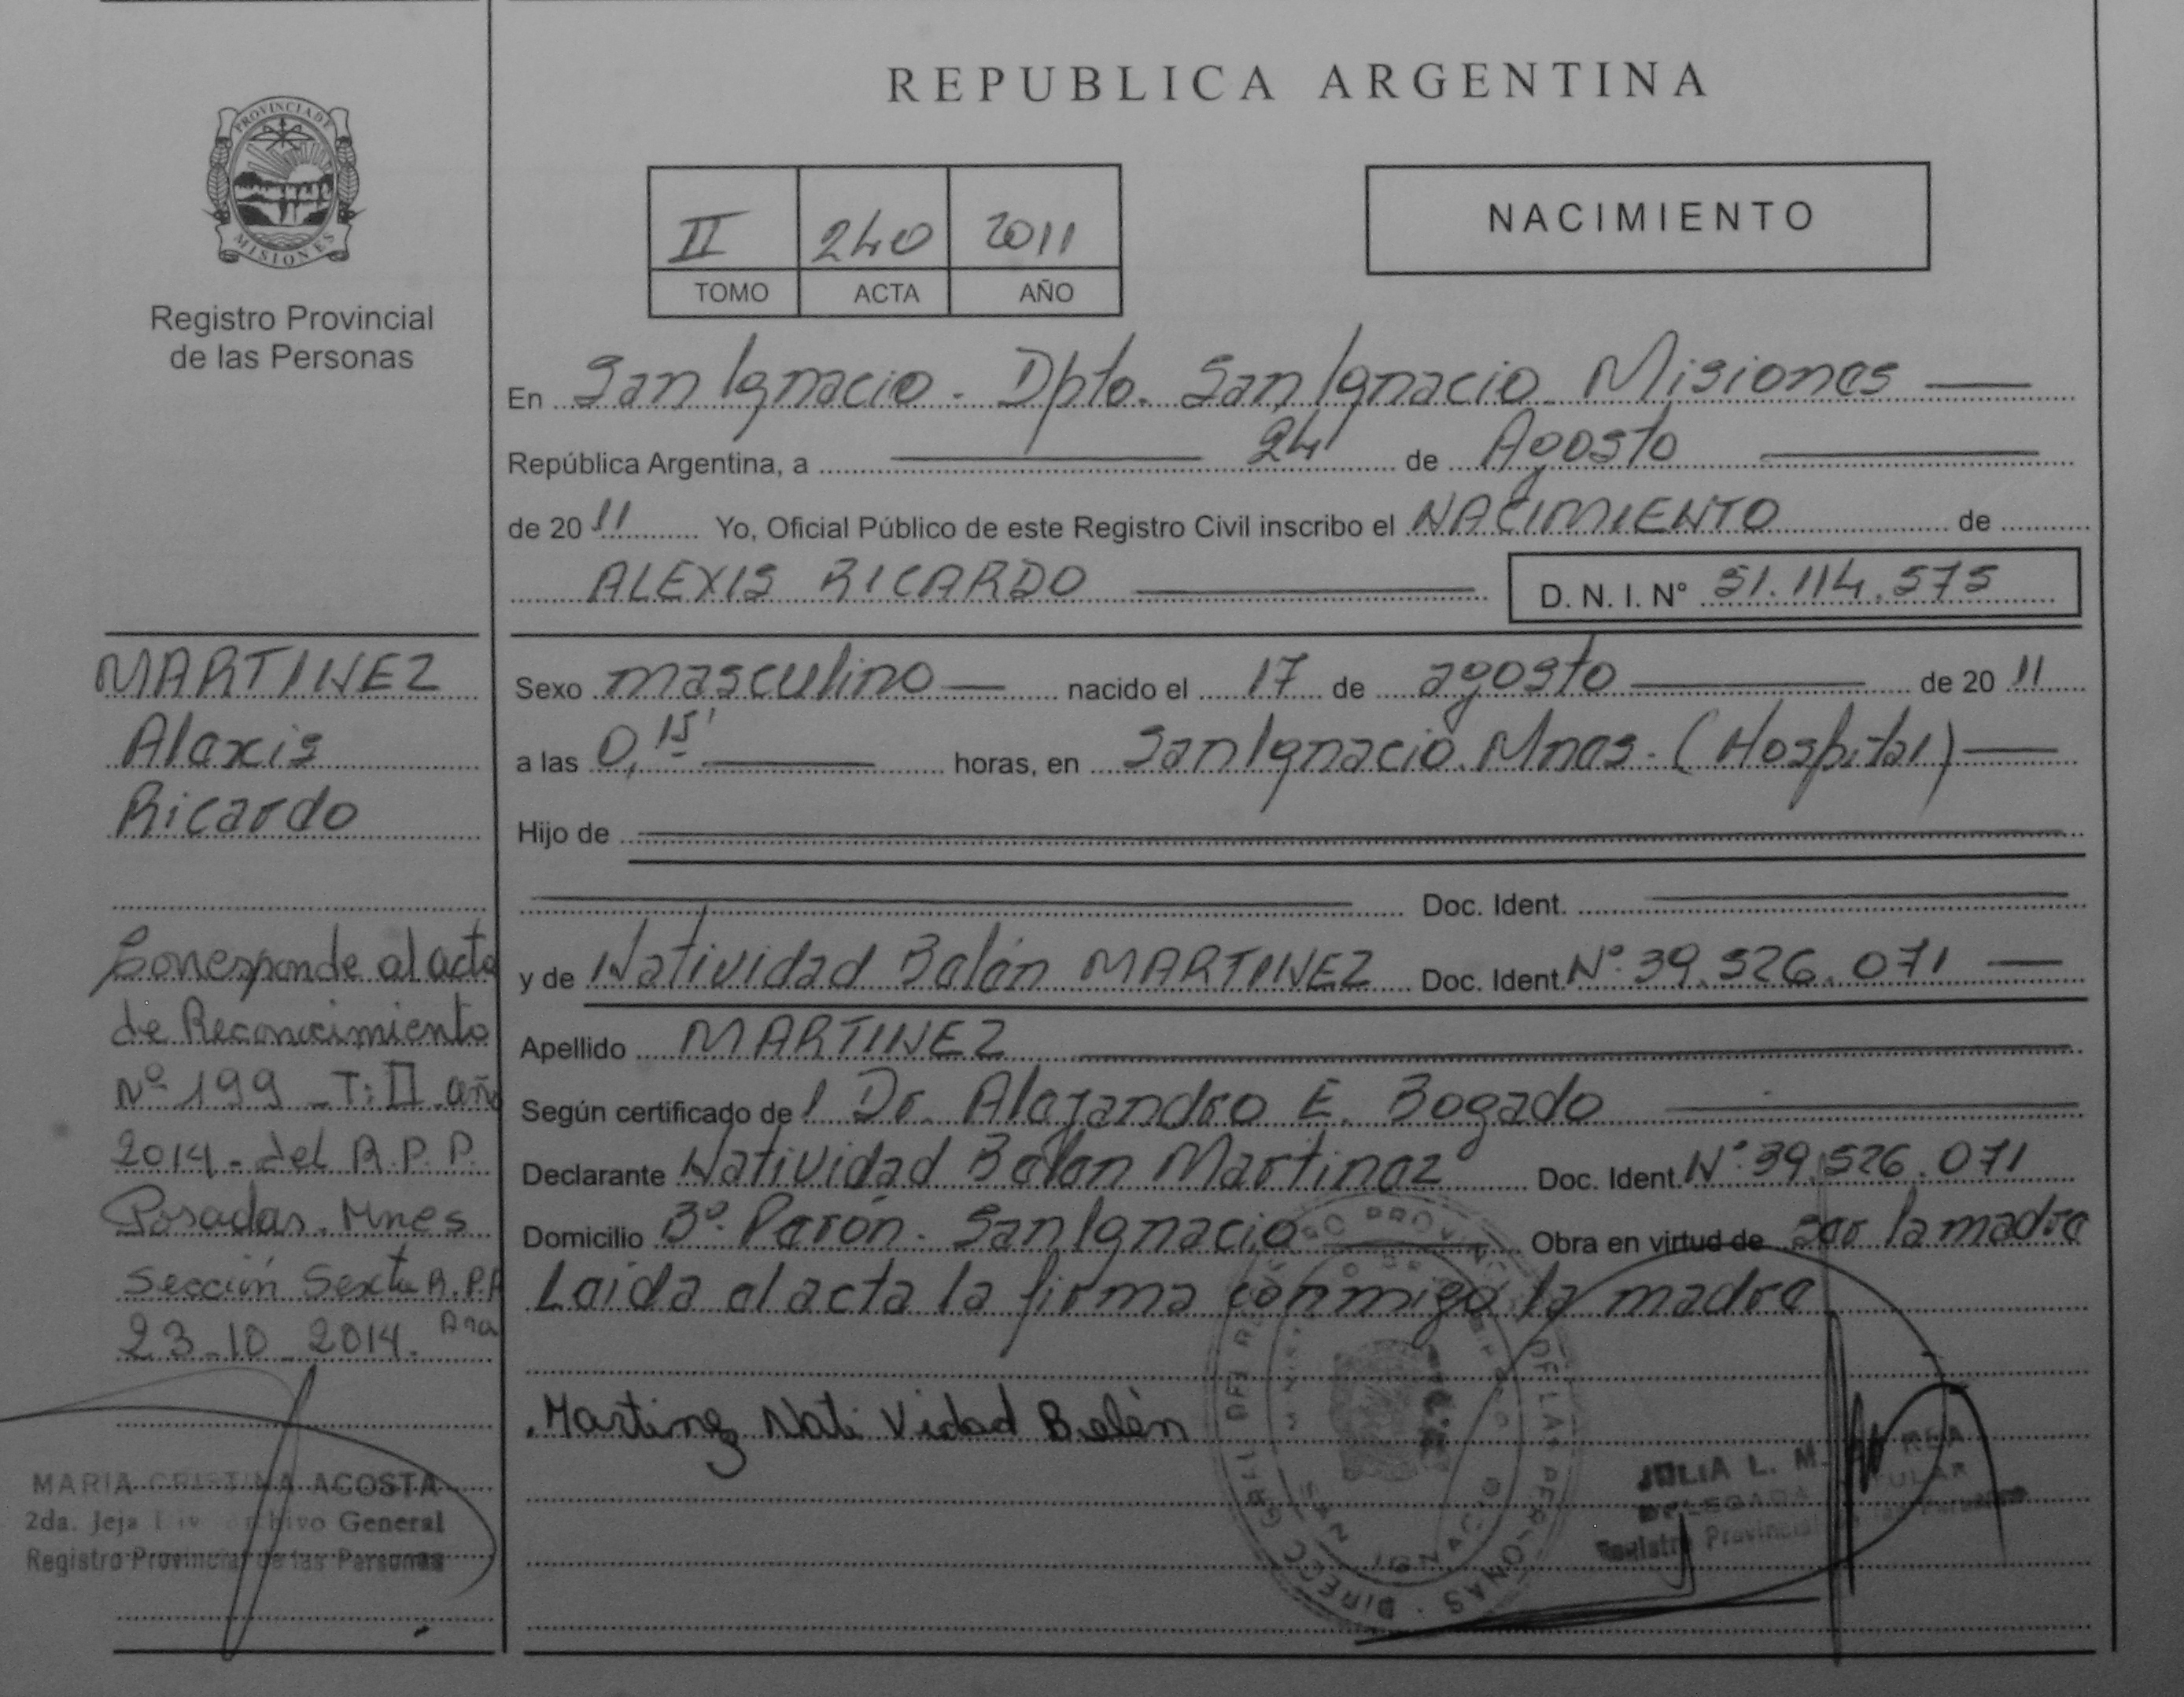 REPUBLICA ARGENTINA
PROVINCIA DE
MISIONES
Registro Provincial
de las Personas
II 240 2011
TOMO ACTA AÑO
NACIMIENTO
En San Ignacio - Dpto. San Ignacio Misiones
República Argentina, a 24 de Agosto
de 2011 Yo, Oficial Público de este Registro Civil inscribo el NACIMIENTO de
ALEXIS RICARDO D. N. I. Nº 51.114.575
MARTINEZ
Alexis
Ricardo
Corresponde al acta
de Reconocimiento
Nº 199 - T: II año
2014 - del R.P.P.
Posadas. Mnes
Sección Sexta R.P.P
23-10-2014.
MARIA CRISTINA ACOSTA
2da. Jefa Archivo General
Registro Provincial de las Personas
Sexo masculino nacido el 17 de agosto de 2011
a las 0,15' horas, en San Ignacio. Mnes. (Hospital)
Hijo de
Doc. Ident.
y de Natividad Belén MARTINEZ Doc. Ident. Nº 39.526.071
Apellido MARTINEZ
Según certificado del Dr. Alejandro E. Bogado
Declarante Natividad Belen Martinez Doc. Ident. Nº 39.526.071
Domicilio Bº. Perón. San Ignacio Obra en virtud de ser la madre
Leida el acta la firma conmigo la madre
Martinez Nati Vidad Belén
JULIA L. M.
DELEGADA TITULAR
Registro Provincial de las Personas
SAN IGNACIO